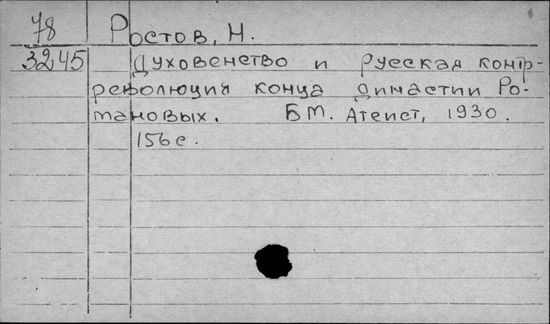 78 Ростов, Н.
3245 Духовенство и русская контр-
революция конца династии Ро-
мановых. БМ. Атеист, 1930.
156 с.